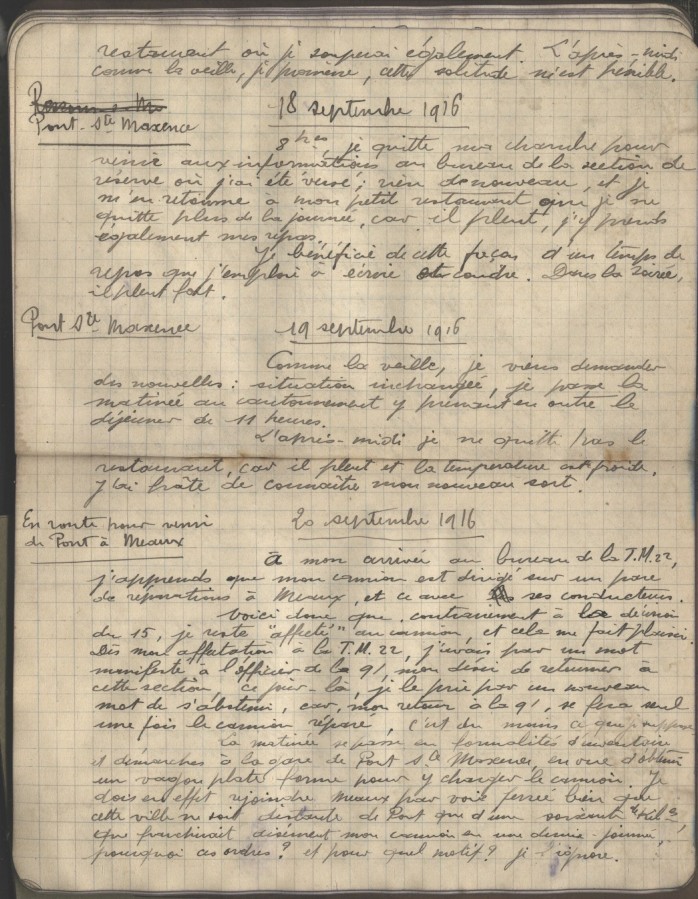 restaurant où je souperai également. L'après-midi
comme la veille, je promène, cette solitude m'est pénible.
Pont-Ste Maxence
18 septembre 1916
8hes, je quitte ma chambre pour
venir aux informations au bureau de la section de
réserve où j'ai été versé; rien de nouveau, et je
m'en retourne à mon petit restaurant que je ne
quitte plus de la journée, car il pleut, j'y prends
également mes repas.
Je bénéficie de cette façon d'un temps de
repos que j'emploie à écrire et coudre. Dans la soirée,
il pleut fort.
Pont Ste Maxence
19 septembre 1916
Comme la veille, je viens demander
des nouvelles: situation inchangée, je passe la
matinée au cantonnement y prenant en outre le
déjeuner de 11 heures.
L'après-midi je ne quitte pas le
restaurant, car il pleut et la température est froide.
J'ai hâte de connaître mon nouveau sort.
En route pour venir
de Pont à Meaux
20 septembre 1916
à mon arrivée au bureau de la T.M. 22,
j'apprends que mon camion est dirigé sur un parc
de réparations à Meaux, et ce avec ses conducteurs.
Voici donc que, contrairement à la décision
du 15, je reste "affecté" au camion, et cela me fait plaisir.
Dès mon affectation à la T.M. 22, j'avais par un mot
manifesté à l'officier de la 91, mon désir de retourner à
cette section, ce jour-là, je le prie par un nouveau
mot de s'abstenir, car, mon retour à la 91, se fera seul
une fois le camion réparé, c'est du moins ce que je suppose
La matinée se passe en formalités d'inventaire
et démarches à la gare de Pont Ste Maxence, en vue d'obtenir
un wagon plate forme pour y charger le camion. Je
dois en effet rejoindre Meaux par voie ferrée bien que
cette ville ne soit distante de Pont que d'une soixantne de kil
que franchirait aisément mon camion en une demie-journée,
pourquoi ces ordres? et pour quel motif? je l'ignore.